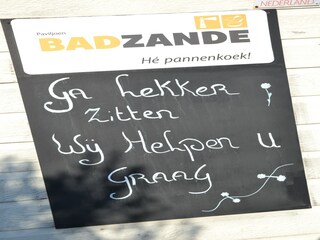 NEDERLAND
Paviljoen
BADZANDE
Hé pannenkoek!
Ga Lekker
Zitten
Wij Helpen u
GRAAG